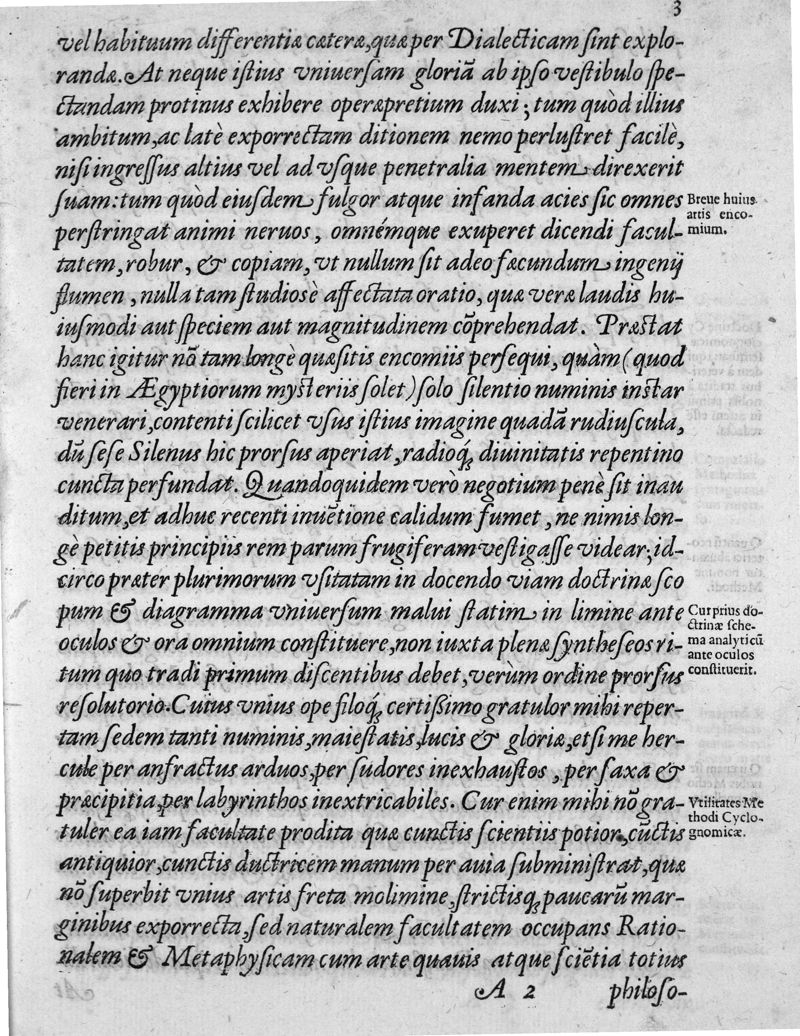 3
vel habituum differentiæ cæteræ, quæ per Dialecticam ſint explo-
randæ. At neque iſtius vniuerſam gloriā ab ipſo veſtibulo ſpe-
ctandam protinus exhibere operæpretium duxi; tum quòd illius
ambitum, ac latè exporrectam ditionem nemo perluſtret facilè,
niſi ingreſſus altius vel ad vſque penetralia mentem direxerit
ſuam: tum quòd eiuſdem fulgor atque infanda acies ſic omnes
Breue huius
artis enco-
mium.
perſtringat animi neruos, omnémque exuperet dicendi facul-
tatem, robur, & copiam, vt nullum ſit adeo fæcundum ingenij
flumen, nulla tam ſtudiosè affectata oratio, quæ veræ laudis hu-
iuſmodi aut ſpeciem aut magnitudinem cōprehendat. Præſtat
hanc igitur nō tam longè quæſitis encomiis perſequi, quàm (quod
fieri in Ægyptiorum myſteriis ſolet) ſolo ſilentio numinis inſtar
venerari, contenti ſcilicet vſus iſtius imagine quadā rudiuſcula,
dū ſeſe Silenus hic prorſus aperiat, radioq́; diuinitatis repentino
cuncta perfundat. Quandoquidem verò negotium penè ſit inau
ditum, et adhuc recenti inuētione calidum fumet, ne nimis lon-
gè petitis principiis rem parum frugiferam veſtigaſſe videar; id-
circo præter plurimorum vſitatam in docendo viam doctrinæ ſco
pum & diagramma vniuerſum malui ſtatim in limine ante
Cur prius do-
ctrinæ ſche-
ma analyticū
ante oculos
conſtituerit.
oculos & ora omnium conſtituere, non iuxta plenæ ſyntheſeos ri-
tum quo tradi primum diſcentibus debet, verùm ordine prorſus
reſolutorio. Cuius vnius ope filoq́; certißimo gratulor mihi reper-
tam ſedem tanti numinis, maieſtatis, lucis & gloriæ, etſi me her-
cule per anfractus arduos, per ſudores inexhauſtos, per ſaxa &
præcipitia, per labyrinthos inextricabiles. Cur enim mihi nō gra-
Vtilitates Me
thodi Cyclo-
gnomicæ.
tuler ea iam facultate prodita quæ cunctis ſcientiis potior, cūctis
antiquior, cunctis ductricem manum per auia ſubminiſtrat, quæ
nō ſuperbit vnius artis freta molimine, ſtrictisq; paucarū mar-
ginibus exporrecta, ſed naturalem facultatem occupans Ratio-
nalem & Metaphyſicam cum arte quauis atque ſciētia totius
A 2 philoſo-